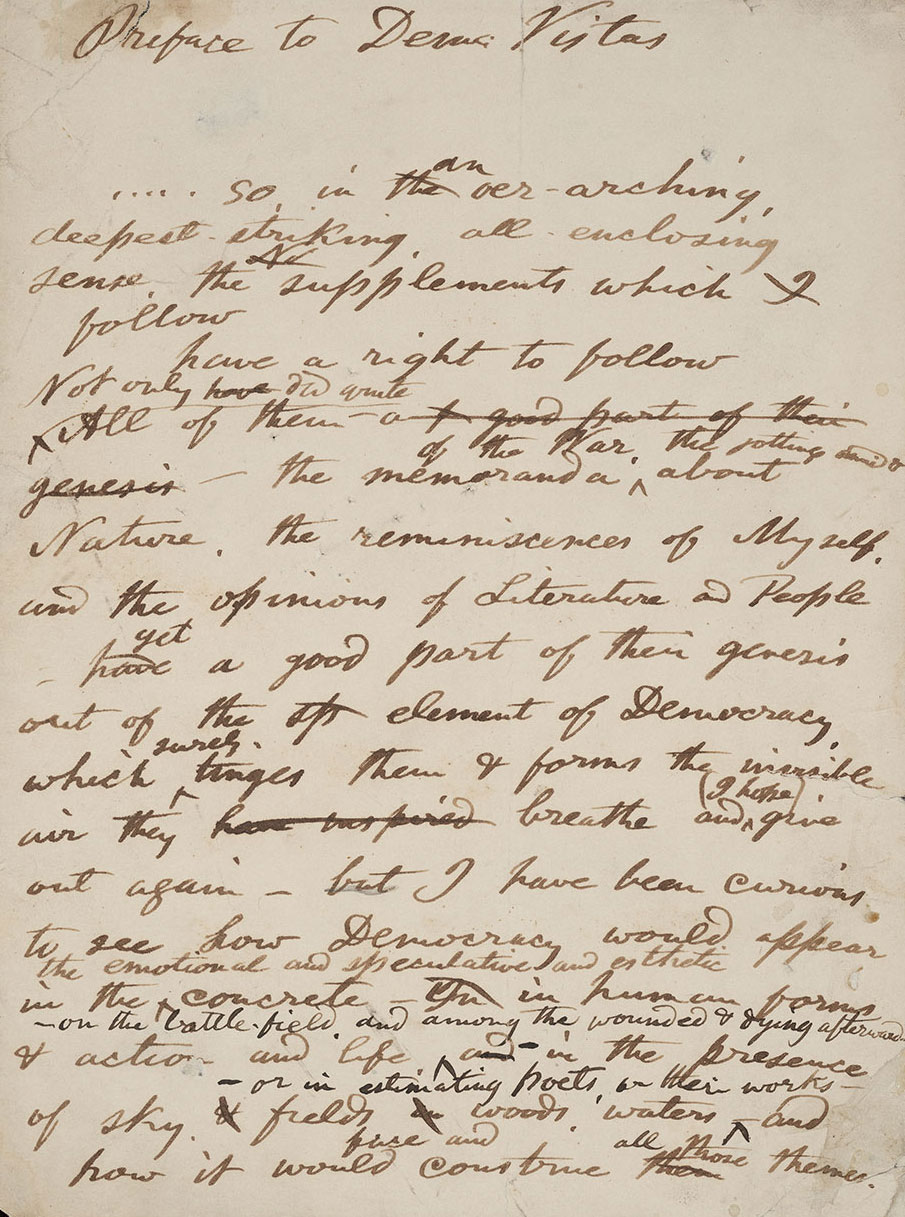 Preface to Demo Vistas
..... so, in the an oer-arching,
deepest-striking, all-enclosing
sense, the supplements which I
follow
have a right to follow
Not only have did write
All of them — a good part of their
of the War, the jottings amid &
genesis — the memoranda about
Nature, the reminiscences of Myself,
and the opinions of Literature and People
yet
– have a good part of their genesis
out of the element of Democracy,
surely
which tinges them & forms the invisible
(I hope)
air they have inspired breathe and give
out again – but I have been curious
to see how Democracy would appear
the emotional and speculative and esthetic
in the concrete – in human forms
– on the battle-field, and among the wounded & dying afterward
& action and life, and – in the presence
– or in estimating poets, or their works –
of sky, & fields woods, waters – and
face and all those
how it would construe them themes.